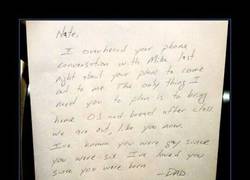 Nate,
I overheard your phone
conversation with Mike last
night about your plans to come
out to me. The only thing I
need you to plan is to bring
home OJ and bread after class.
We are out, like you now.
I've known you were gay since
you were six. I've loved you
since you were born.
- DAD